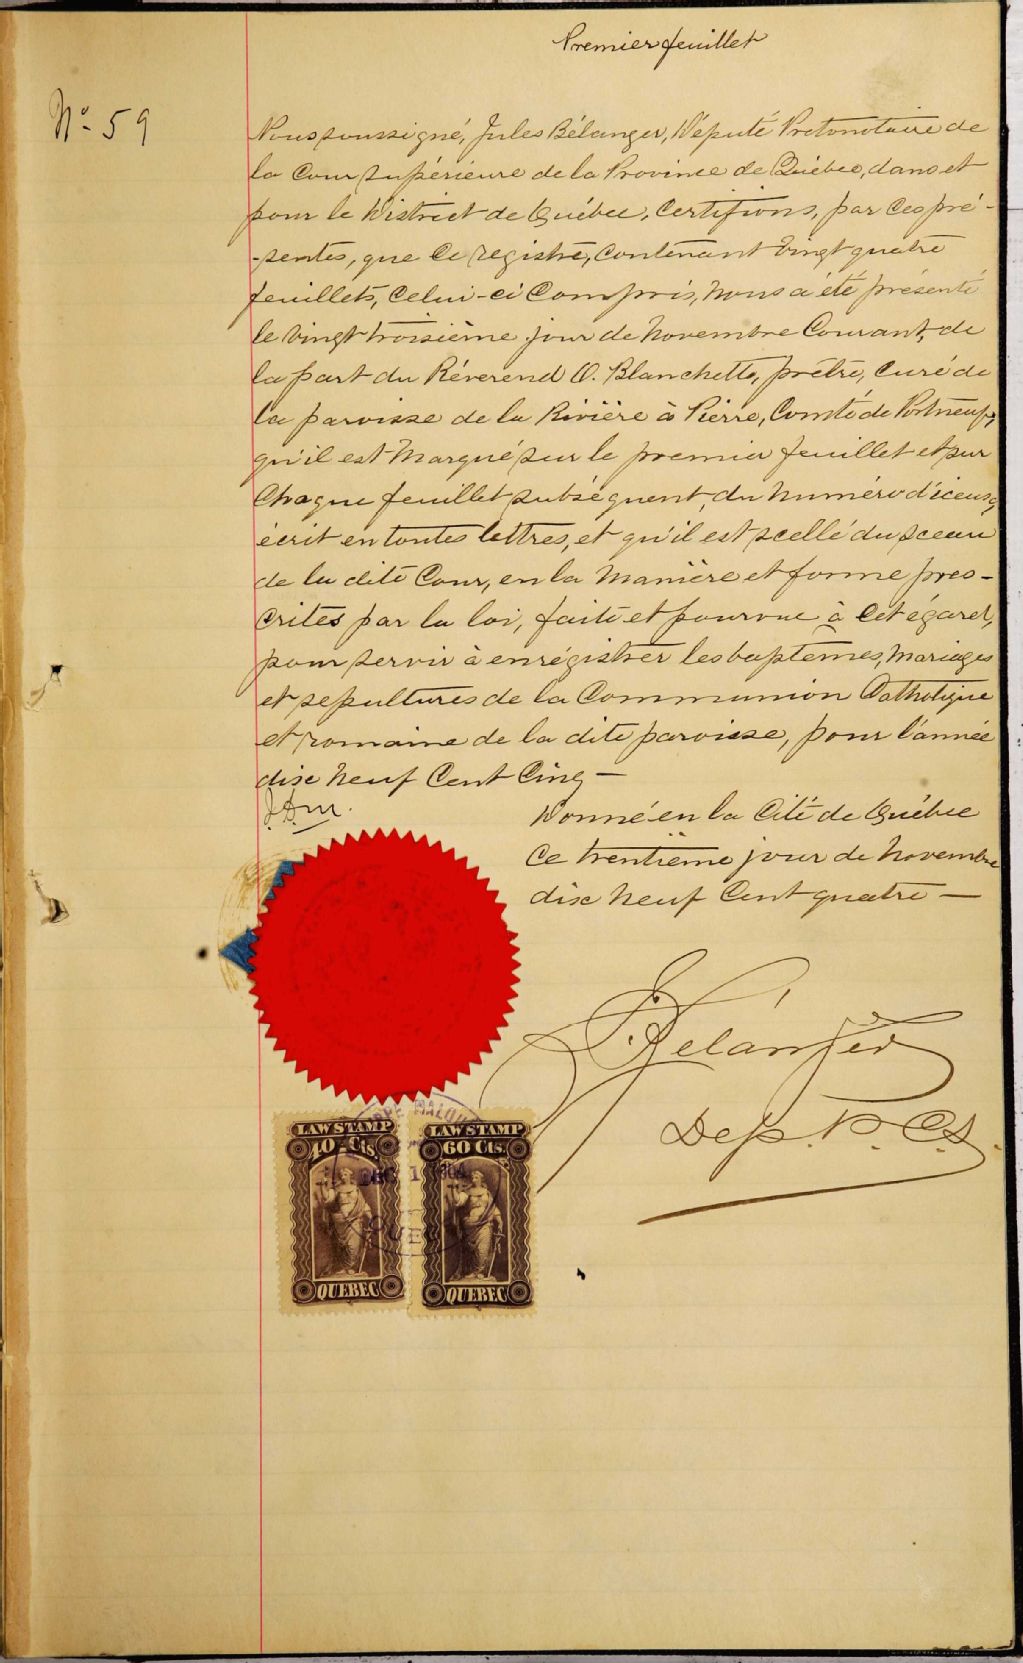 Premier feuillet
No. 59
Nous soussigné, Jules Bélanger, Député Protonotaire de
la Cour Supérieure de la Province de Québec, dans et
pour le District de Québec, Certifions, par ces pré-
-sentes, que ce registre, contenant vingt quatre
feuillets, celui-ci compris, nous a été présenté
le vingt troisième jour de novembre courant, de
la part du Révérend O. Blanchette, prêtre, curé de
la paroisse de la Rivière à Pierre, Comté de Portneuf,
qu'il est marqué sur le premier feuillet et sur
chaque feuillet subséquent, du numéro d'iceux,
écrit en toutes lettres, et qu'il est scellé du sceau
de la dite Cour, en la manière et forme pres-
crites par la loi, faite et pourvue à cet égard,
pour servir à enrégistrer les baptêmes, mariages
et sépultures de la Communion Catholique
et romaine de la dite paroisse, pour l'année
dix neuf cent cinq —
Donné en la Cité de Québec
ce trentième jour de novembre
dix neuf cent quatre —
J. Bélanger
Dep. P. C. S.
LAW STAMP
40 Cts.
QUEBEC
LAW STAMP
60 Cts.
QUEBEC